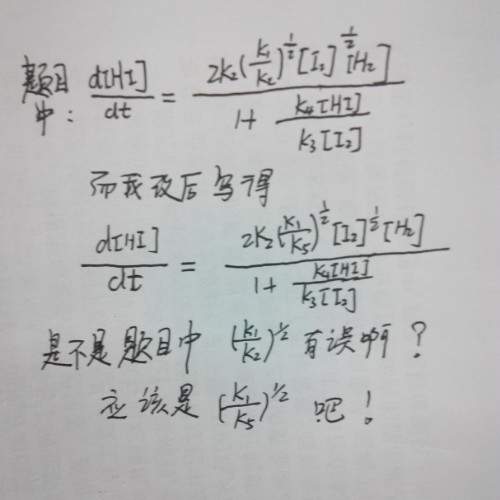 题目中: d[HI]/dt = 2K₂(K₁/K₂)^½[I₂]^½[H₂] / (1+ K₄[HI]/K₃[I₂])
而我最后写得
d[HI]/dt = 2K₂(K₁/K₅)^½[I₂]^½[H₂] / (1+ K₄[HI]/K₃[I₂])
是不是题目中 (K₁/K₂)^½ 有误啊?
应该是 (K₁/K₅)^1/2 吧!